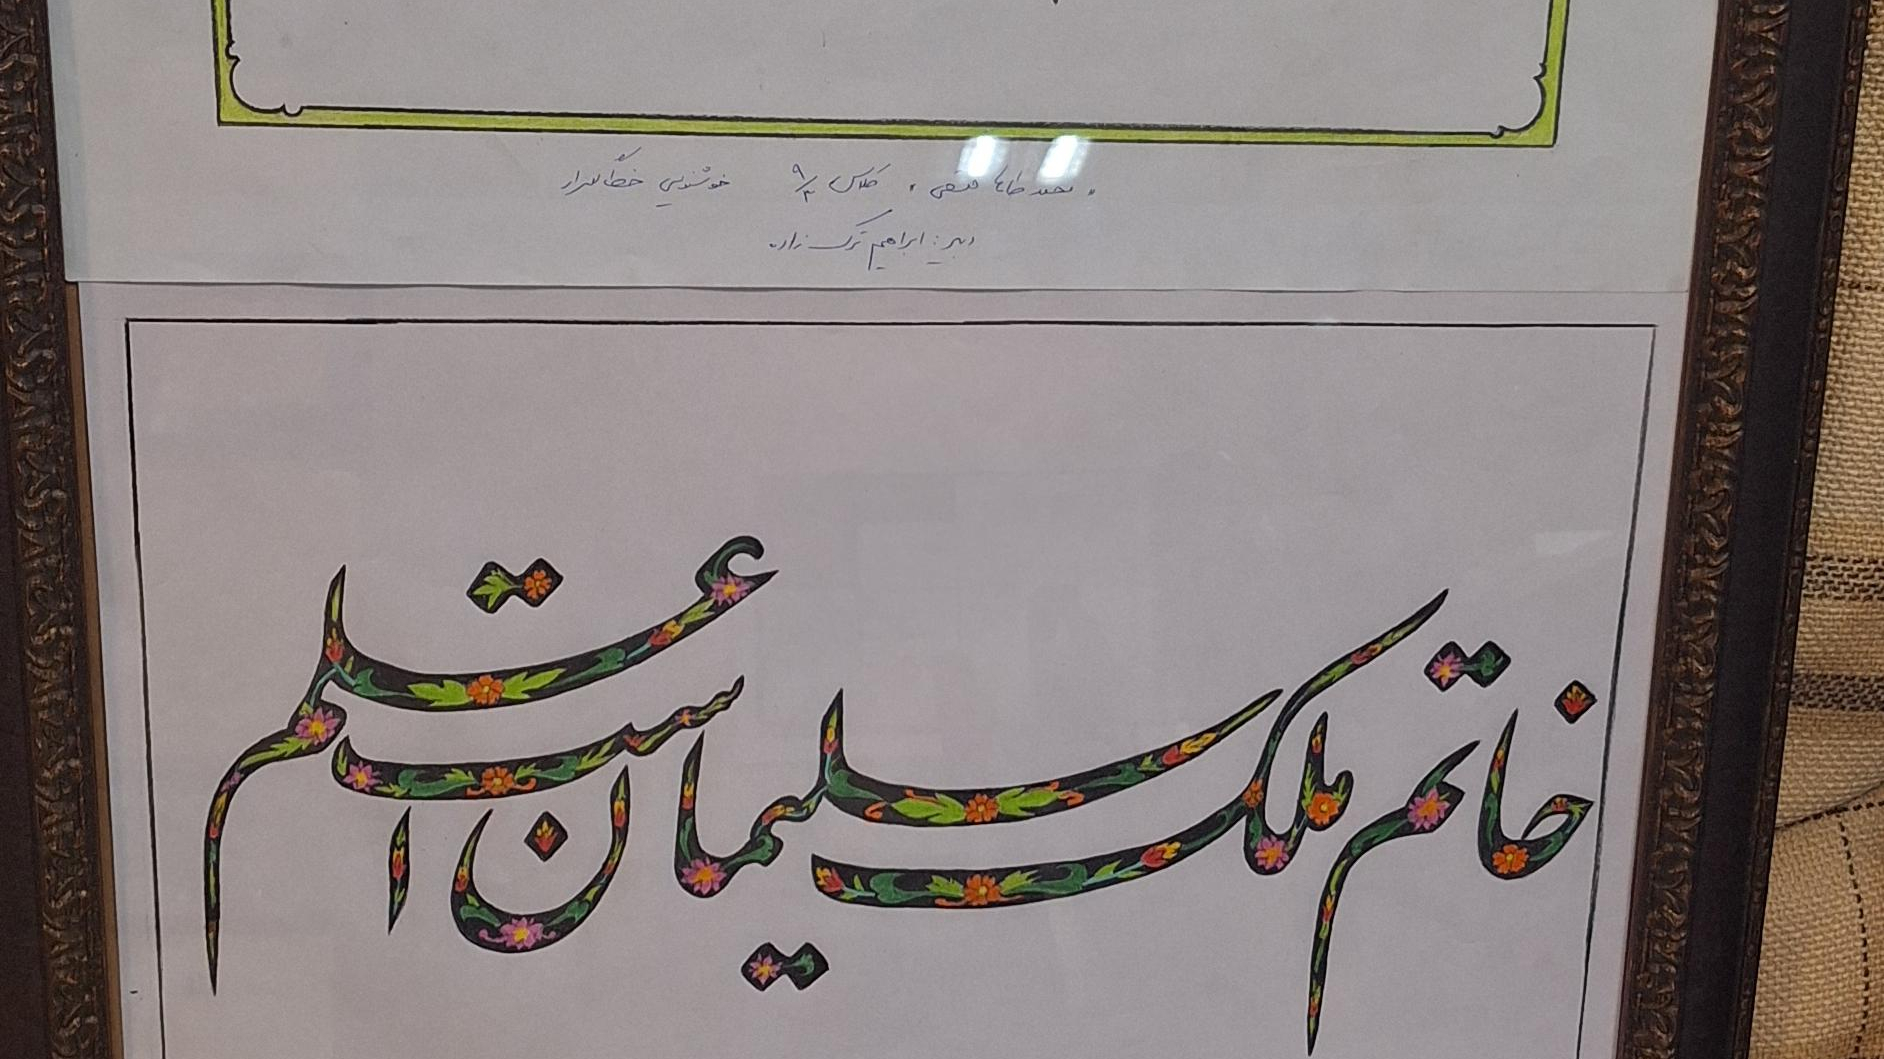 «محمد طاها متقی» کلاس ۹/۳ خوشنویسی خط گلزار
دبیر: ابراهیم ترک زاده
خاتم ملک سلیمان است علم